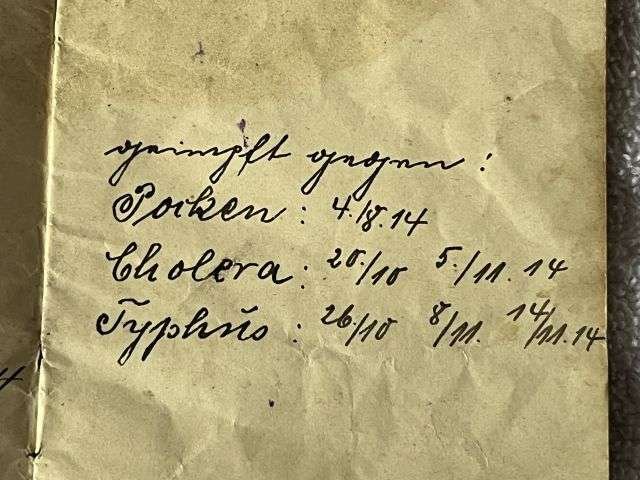 geimpft gegen:
Pocken: 4./8. 14
Cholera: 20./10 5./11. 14
Typhús: 26./10 8/11. 14/11. 14